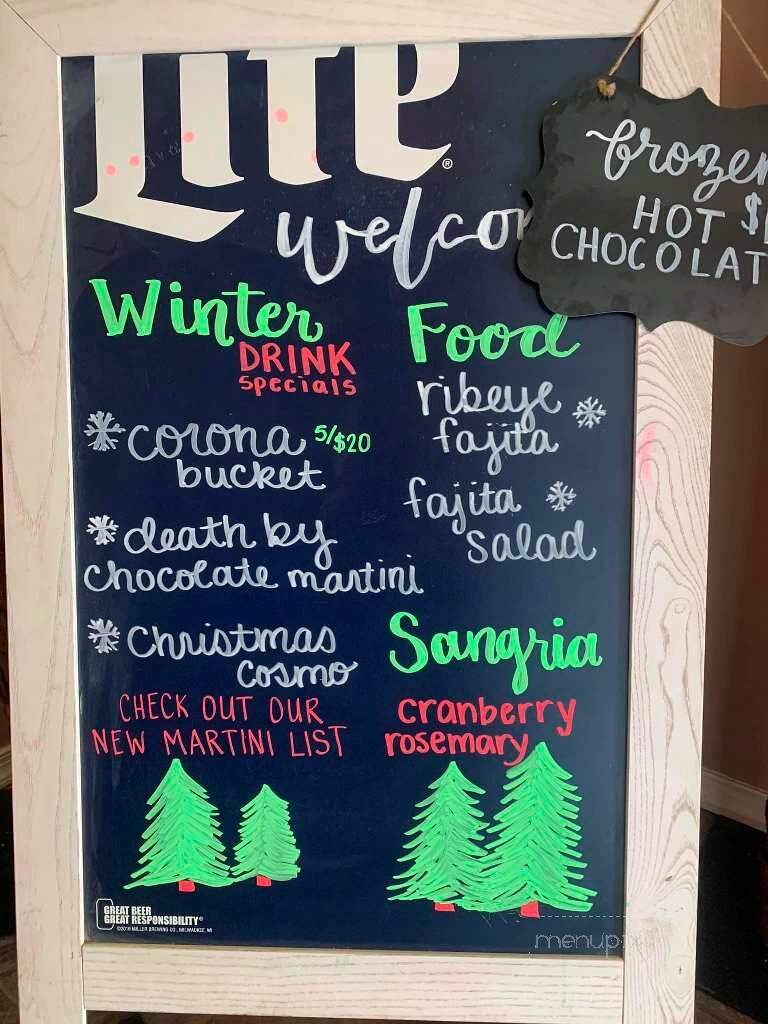 Lite®
frozen
HOT
CHOCOLAT
Winter
DRINK
specials
* corona 5/$20
bucket
* death by
chocolate martini
* Christmas
cosmo
CHECK OUT OUR
NEW MARTINI LIST
Food
ribeye *
fajita
fajita *
salad
Sangria
cranberry
rosemary
GREAT BEER
GREAT RESPONSIBILITY®
©2016 MILLER BREWING CO., MILWAUKEE, WI